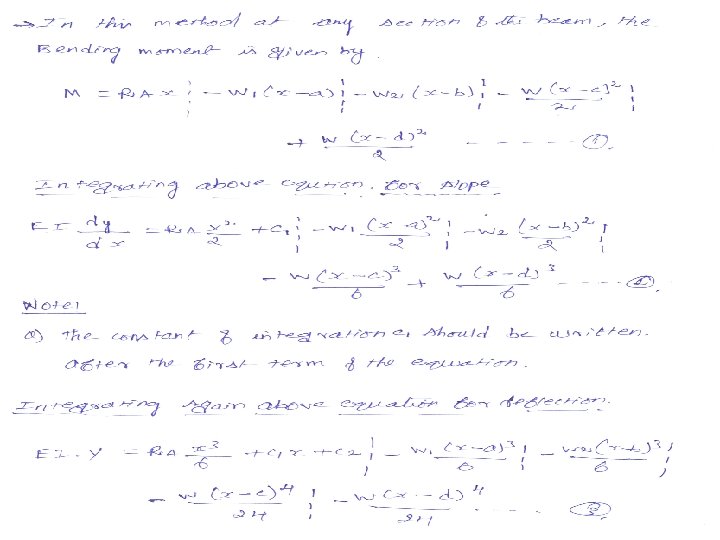 → In this method at any section of the beam, the
Bending moment is given by.
M = RA x ¦ - W1 (x-a) ¦ - W2 (x-b) ¦ - w (x-c)²/2 ¦
+ w (x-d)²/2 - - - - - ①
Integrating above eqution. for slope
EI dy/dx = RA x²/2 + C1 ¦ - W1 (x-a)²/2 ¦ - W2 (x-b)²/2 ¦
- w(x-c)³/6 + w (x-d)³/6 - - - - ②.
Note:
a) The constant of integration C1 should be written.
after the first term of the equation.
Integrating again above equation for deflection.
EI.y = RA x³/6 + C1x + C2 ¦ - W1 (x-a)³/6 ¦ - W2 (x-b)³/6 ¦
- w (x-c)⁴/24 ¦ - w (x-d)⁴/24 - - - - ③.